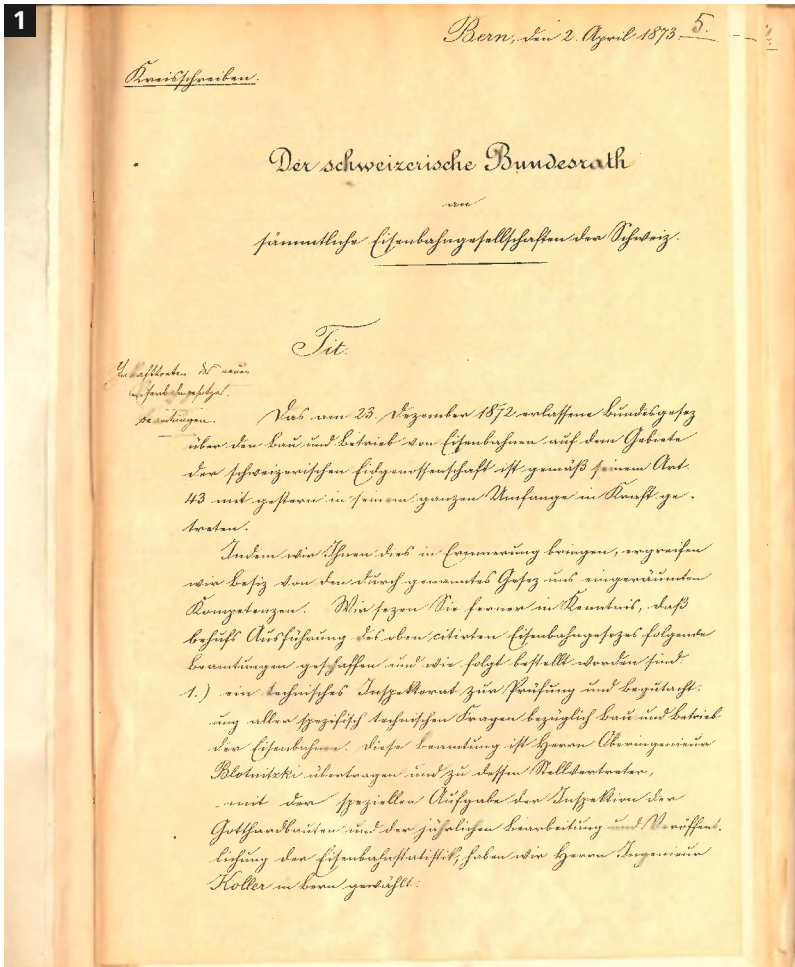 1
Bern, den 2. April 1873.
5.
Kreisschreiben.
Der schweizerische Bundesrath
an
sämmtliche Eisenbahngesellschaften der Schweiz.
Tit.
Inkrafttreten des neuen
Eisenbahngesetzes.
Beamtungen.
Das am 23. Dezember 1872 erlassene Bundesgesez
über den Bau und Betrieb von Eisenbahnen auf dem Gebiete
der schweizerischen Eidgenossenschaft ist gemäß seinem Art.
43 mit gestern in seinem ganzen Umfange in Kraft ge-
treten.
Indem wir Ihnen dies in Erinnerung bringen, ergreifen
wir Besiz von den durch genanntes Gesez uns eingeräumten
Kompetenzen. Wir sezen Sie ferner in Kenntnis, daß
behufs Ausführung des oben citirten Eisenbahngesezes folgende
Beamtungen geschaffen und wie folgt bestellt worden sind:
1.) ein technisches Inspektorat zur Prüfung und Begutacht-
ung aller spezifisch technischen Fragen bezüglich Bau und Betrieb
der Eisenbahnen. Diese Beamtung ist Herrn Oberingenieur
Blotnitzki übertragen und zu dessen Stellvertreter,
mit der speziellen Aufgabe der Inspektion der
Gotthardbauten und der jährlichen Bearbeitung und Veröffent-
lichung der Eisenbahnstatistik, haben wir Herrn Ingenieur
Koller in Bern gewählt: